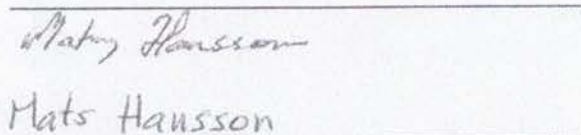 Mats Hansson
Mats Hansson